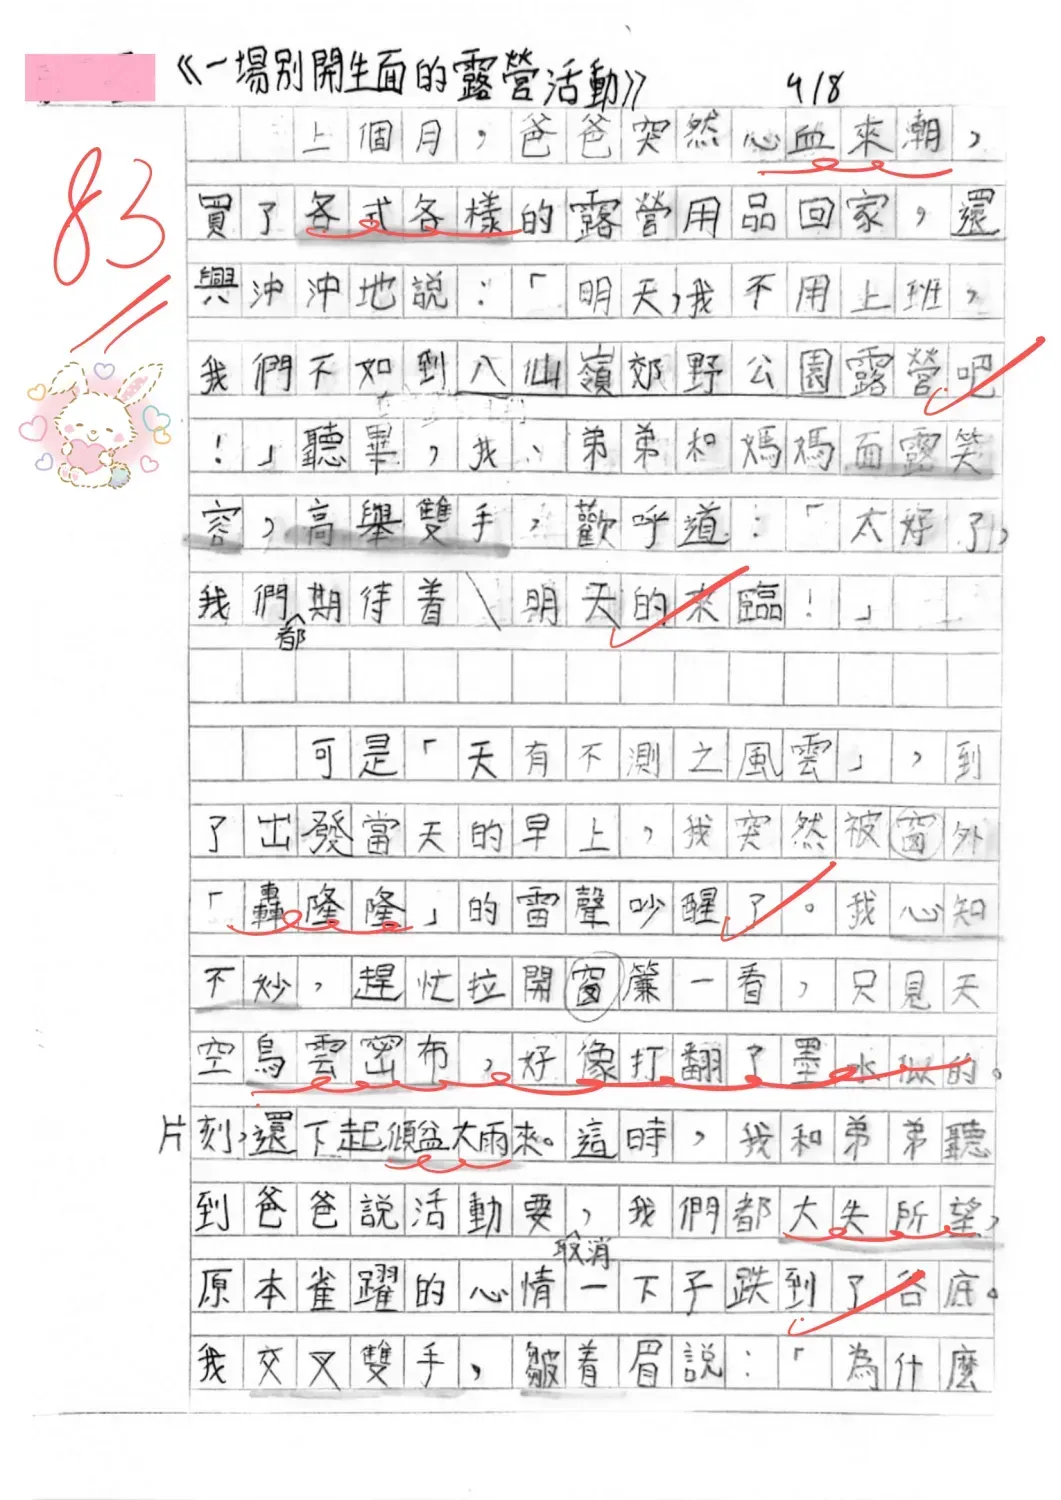 《一場別開生面的露營活動》 4/8
83
上個月，爸爸突然心血來潮，
買了各式各樣的露營用品回家，還
興沖沖地說：「明天，我不用上班，
我們不如到八仙嶺郊野公園露營吧
！」聽畢，我、弟弟和媽媽面露笑
容，高舉雙手，歡呼道：「太好了，
我們都期待着明天的來臨！」
可是「天有不測之風雲」，到
了出發當天的早上，我突然被窗外
「轟隆隆」的雷聲吵醒了。我心知
不妙，趕忙拉開窗簾一看，只見天
空烏雲密布，好像打翻了墨水似的。
片刻，還下起傾盆大雨來。這時，我和弟弟聽
到爸爸說活動要取消，我們都大失所望，
原本雀躍的心情一下子跌到了谷底。
我交叉雙手，皺着眉說：「為什麼